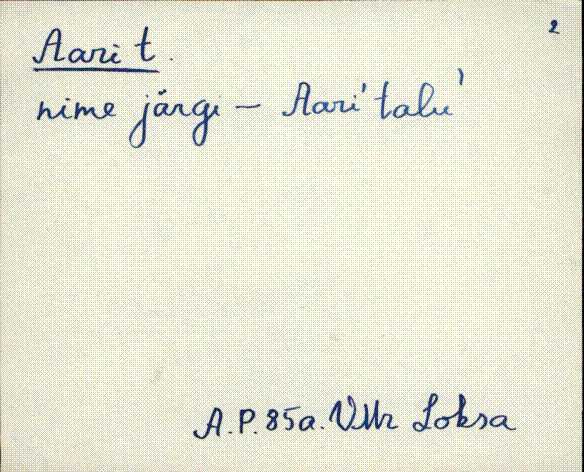 2
Aari t.
nime järgi – Aari' talu'
A.P. 85a. VMr Loksa